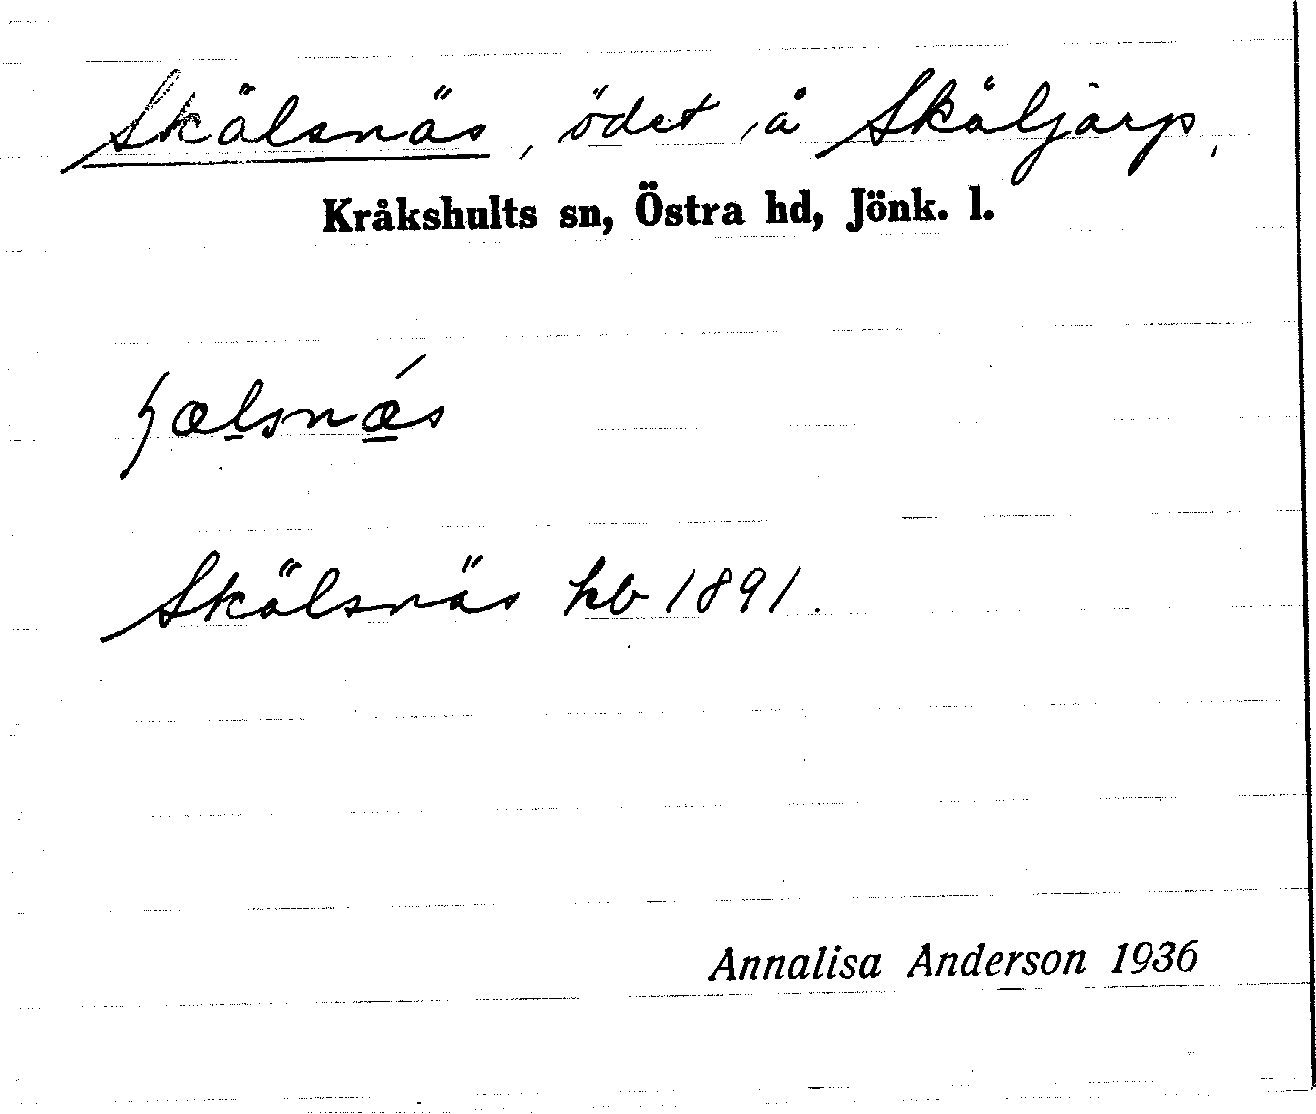 Skälsnäs, ödet, å Skäljarp,
Kråkshults sn, Östra hd, Jönk. l.
ʃælsnǽs
Skälsnäs hb 1891.
Annalisa Anderson 1936